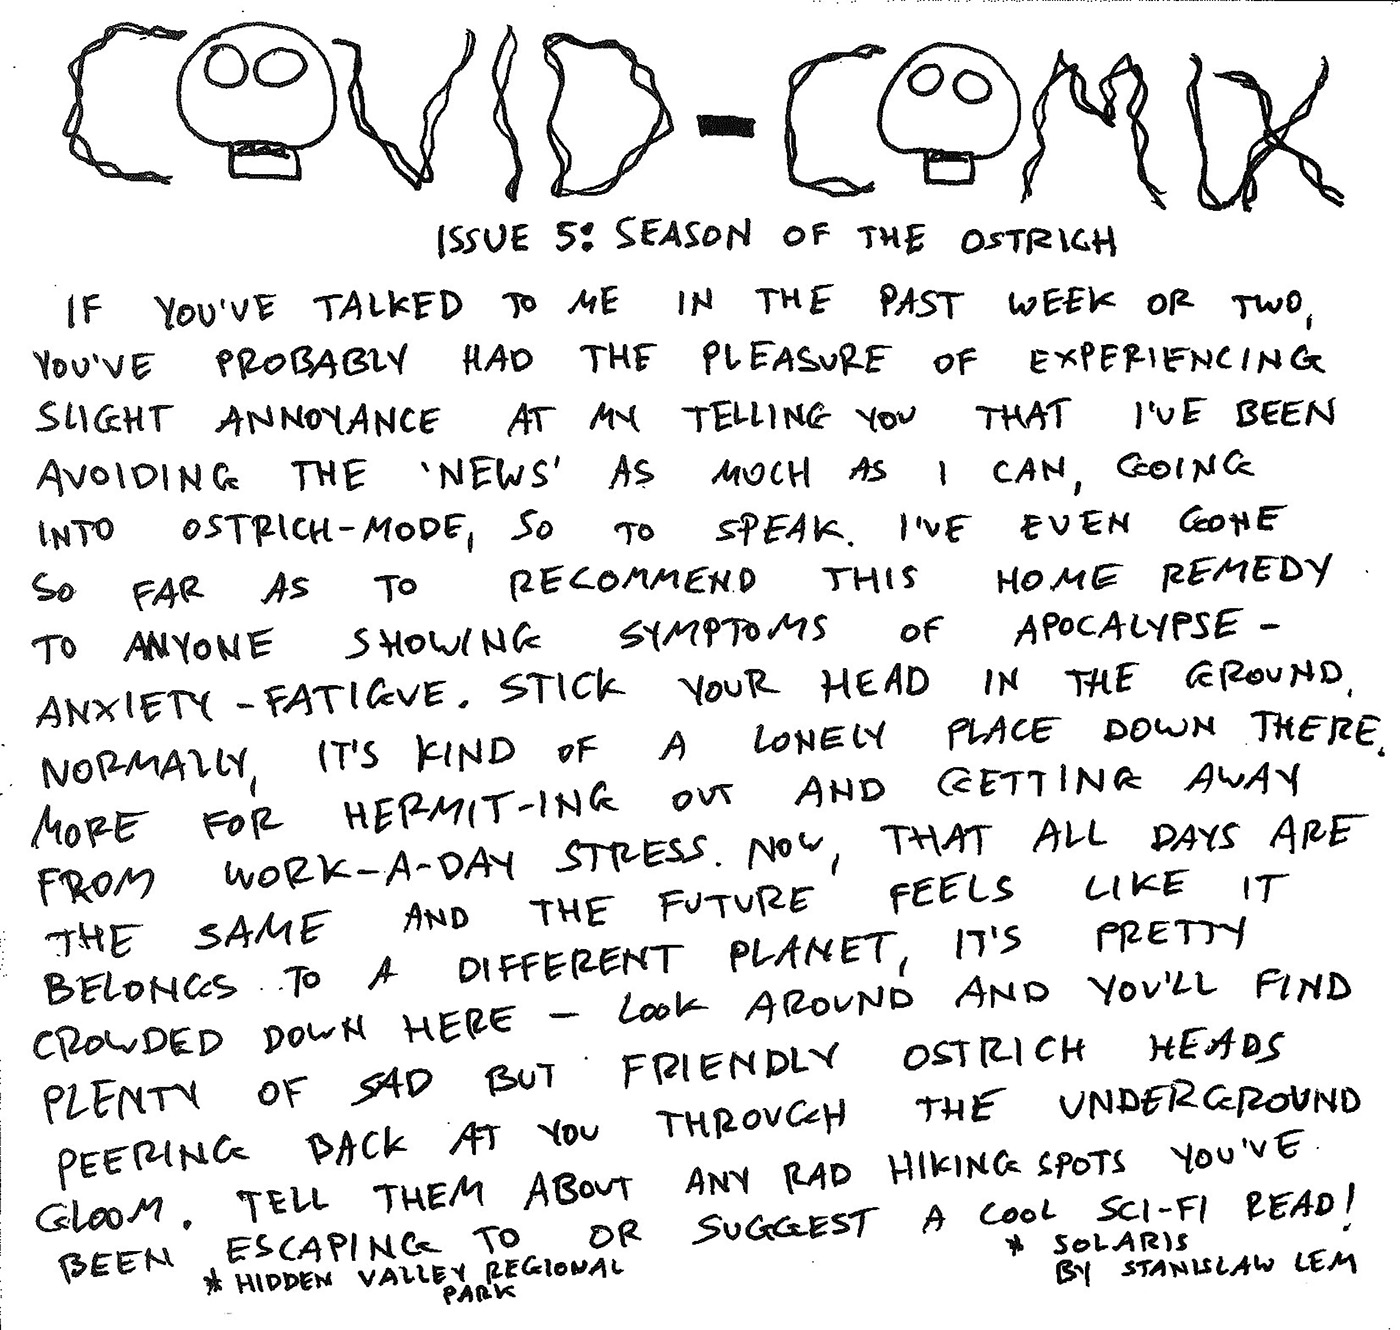 COVID-COMIX
ISSUE 5: SEASON OF THE OSTRICH
IF YOU'VE TALKED TO ME IN THE PAST WEEK OR TWO,
YOU'VE PROBABLY HAD THE PLEASURE OF EXPERIENCING
SLIGHT ANNOYANCE AT MY TELLING YOU THAT I'VE BEEN
AVOIDING THE 'NEWS' AS MUCH AS I CAN, GOING
INTO OSTRICH-MODE, SO TO SPEAK. I'VE EVEN GONE
SO FAR AS TO RECOMMEND THIS HOME REMEDY
TO ANYONE SHOWING SYMPTOMS OF APOCALYPSE-
ANXIETY-FATIGUE. STICK YOUR HEAD IN THE GROUND.
NORMALLY, IT'S KIND OF A LONELY PLACE DOWN THERE.
MORE FOR HERMIT-ING OUT AND GETTING AWAY
FROM WORK-A-DAY STRESS. NOW, THAT ALL DAYS ARE
THE SAME AND THE FUTURE FEELS LIKE IT
BELONGS TO A DIFFERENT PLANET, IT'S PRETTY
CROWDED DOWN HERE - LOOK AROUND AND YOU'LL FIND
PLENTY OF SAD BUT FRIENDLY OSTRICH HEADS
PEERING BACK AT YOU THROUGH THE UNDERGROUND
GLOOM. TELL THEM ABOUT ANY RAD HIKING SPOTS YOU'VE
BEEN ESCAPING TO OR SUGGEST A COOL SCI-FI READ!
* HIDDEN VALLEY REGIONAL
PARK
* SOLARIS
BY STANISLAW LEM